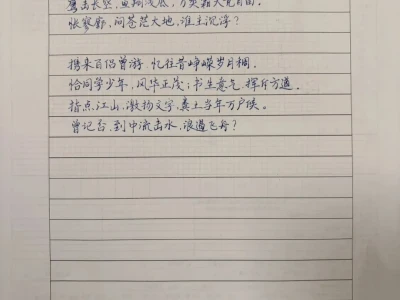 鹰击长空,鱼翔浅底,万类霜天竞自由。
怅寥廓,问苍茫大地,谁主沉浮?
携来百侣曾游 忆往昔峥嵘岁月稠。
恰同学少年,风华正茂;书生意气,挥斥方遒。
指点江山,激扬文字,粪土当年万户侯。
曾记否,到中流击水,浪遏飞舟?